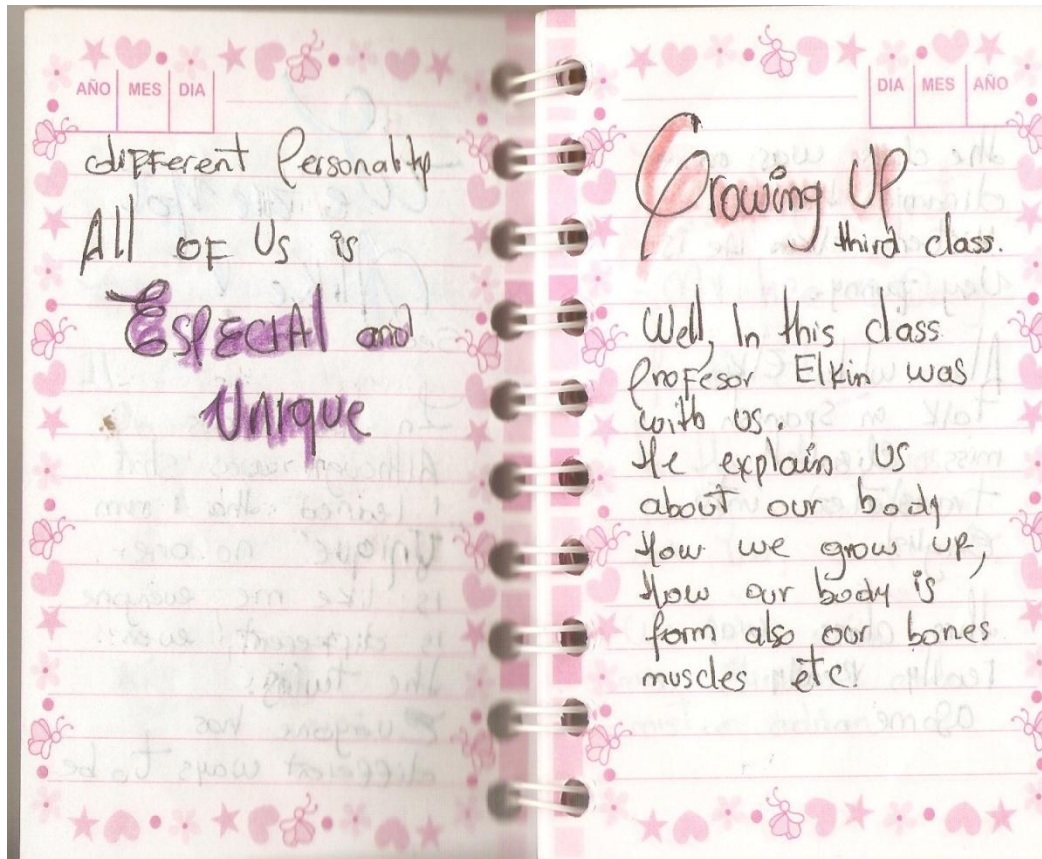 AÑO MES DIA
different Personality
All OF Us is
ESPECIAL and
UNIQUE
DIA MES AÑO
Growing UP
third class.
Well, In this class
Profesor Elkin was
with us.
He explain US
about our body
How we grow up,
How our body is
form also our bones
muscles etc!